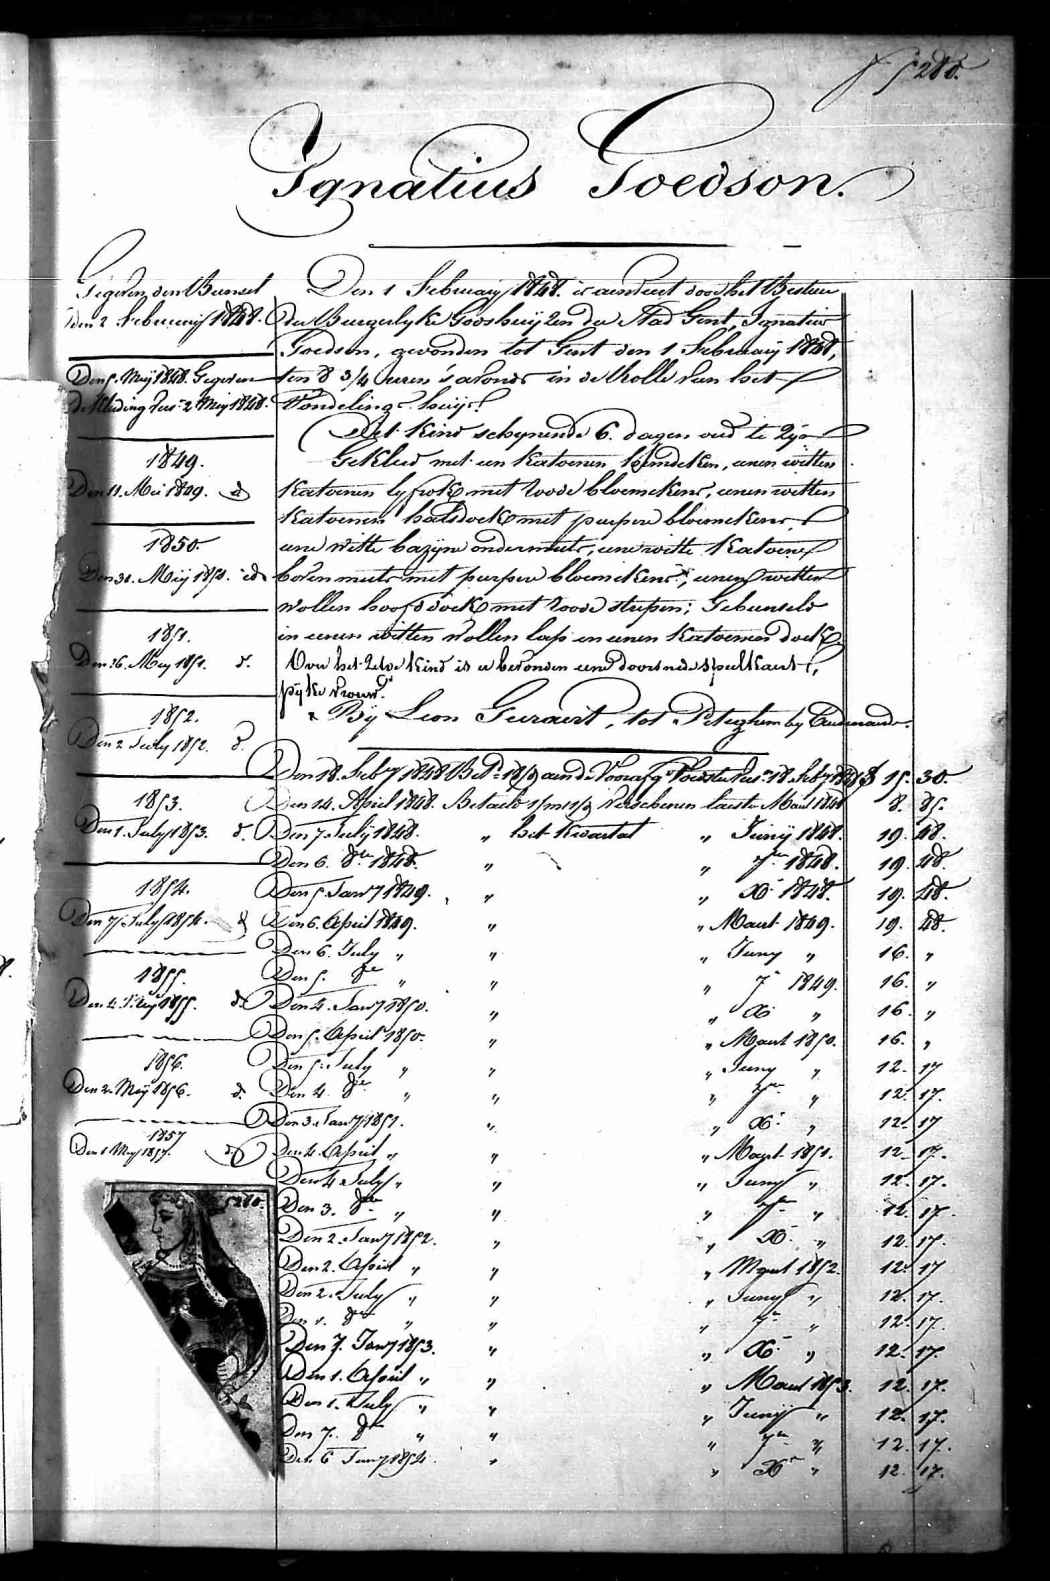 5280.
Ignatius Goedson.
Gegeven den Bunsel
den 2 February 1848.
Den 5. Meij 1848. Gegeven
de Kleeding verv. 2 Meij 1848.
1849.
Den 11. Mei 1849. id
1850.
Den 31. Meij 1850. id
1851.
Den 26. Mey 1851. d.
1852.
Den 2 July 1852. d.
1853.
Den 1. July 1853. d.
1854.
Den 7 July 1854. d
1855.
Den 4. 1855. d.
1856.
Den 2. Meÿ 1856. d.
1857
Den 1 Mey 1857. d
5280.
Den 1 February 1848. is aenveert door het Bestier
der Burgerlyke Godshuyzen der Stad Gent, Ignatius
Goedson, gevonden tot Gent den 1 February 1848,
ten 8 3/4 uren 's avonds in de Rolle van het
Vondeling-huys.
Det kind schynende 6. dagen oud te zyn
Gekleed met een katoenen hemdeken, eenen witten
katoenen lyfrok met roode bloemekens, eenen witten
katoenen halsdoek met purpere bloemekens,
eene witte bazyne ondermuts, eene witte katoene
boven muts met purpere bloemekens, eenen witten
wollen hoofddoek met roode strepen; Gebunseld
in eenen witten wollen lap en eenen katoenen doek
Over het zelve kind is er bevonden eene doorsnede speelkaert,
pyke vrouw.
Bÿ Leon Geeraert, tot Peteghem by Audenaerde.
Den 18. Feby 1848 Bet. aen de Voorzg. Voedster verv. 18 Feby 1848 15. 30.
Den 14. April 1848. Betaeld verschenen laetste Maert 1848 8. 85.
Den 7 July 1848. " het kwartael " Junÿ 1848. 19. 48.
Den 6. 8bre 1848. " " 7bre 1848. 19. 48.
Den 5 Jany 1849. " " Xbre 1848. 19. 48.
Den 6. April 1849. " " Maert 1849. 19. 48.
Den 6. July " " " Juny " 16. "
Den 5. 8bre " " " 7bre 1849. 16. "
Den 4. Jany 1850. " " Xbre " 16. "
Den 5. April 1850. " " Maert 1850. 16. "
Den 5. July " " " Juny " 12. 17
Den 4. 8bre " " " 7bre " 12. 17.
Den 3. Jany 1851. " " Xbre " 12. 17
Den 4. April " " " Maert 1851. 12. 17.
Den 4 July " " " Juny " 12. 17.
Den 3. 8bre " " " 7bre " 12. 17.
Den 2. Jany 1852. " " Xbre " 12. 17.
Den 2. April " " " Maert 1852. 12. 17
Den 2. July " " " Juny " 12. 17.
Den 1. 8bre " " " 7bre " 12. 17.
Den 7. Jany 1853. " " Xbre " 12. 17.
Den 1. April " " " Maert 1853. 12. 17.
Den 1. July " " " Junÿ " 12. 17.
Den 7. 8bre " " " 7bre " 12. 17.
Den 6 Jany 1854. " " Xbre " 12. 17.